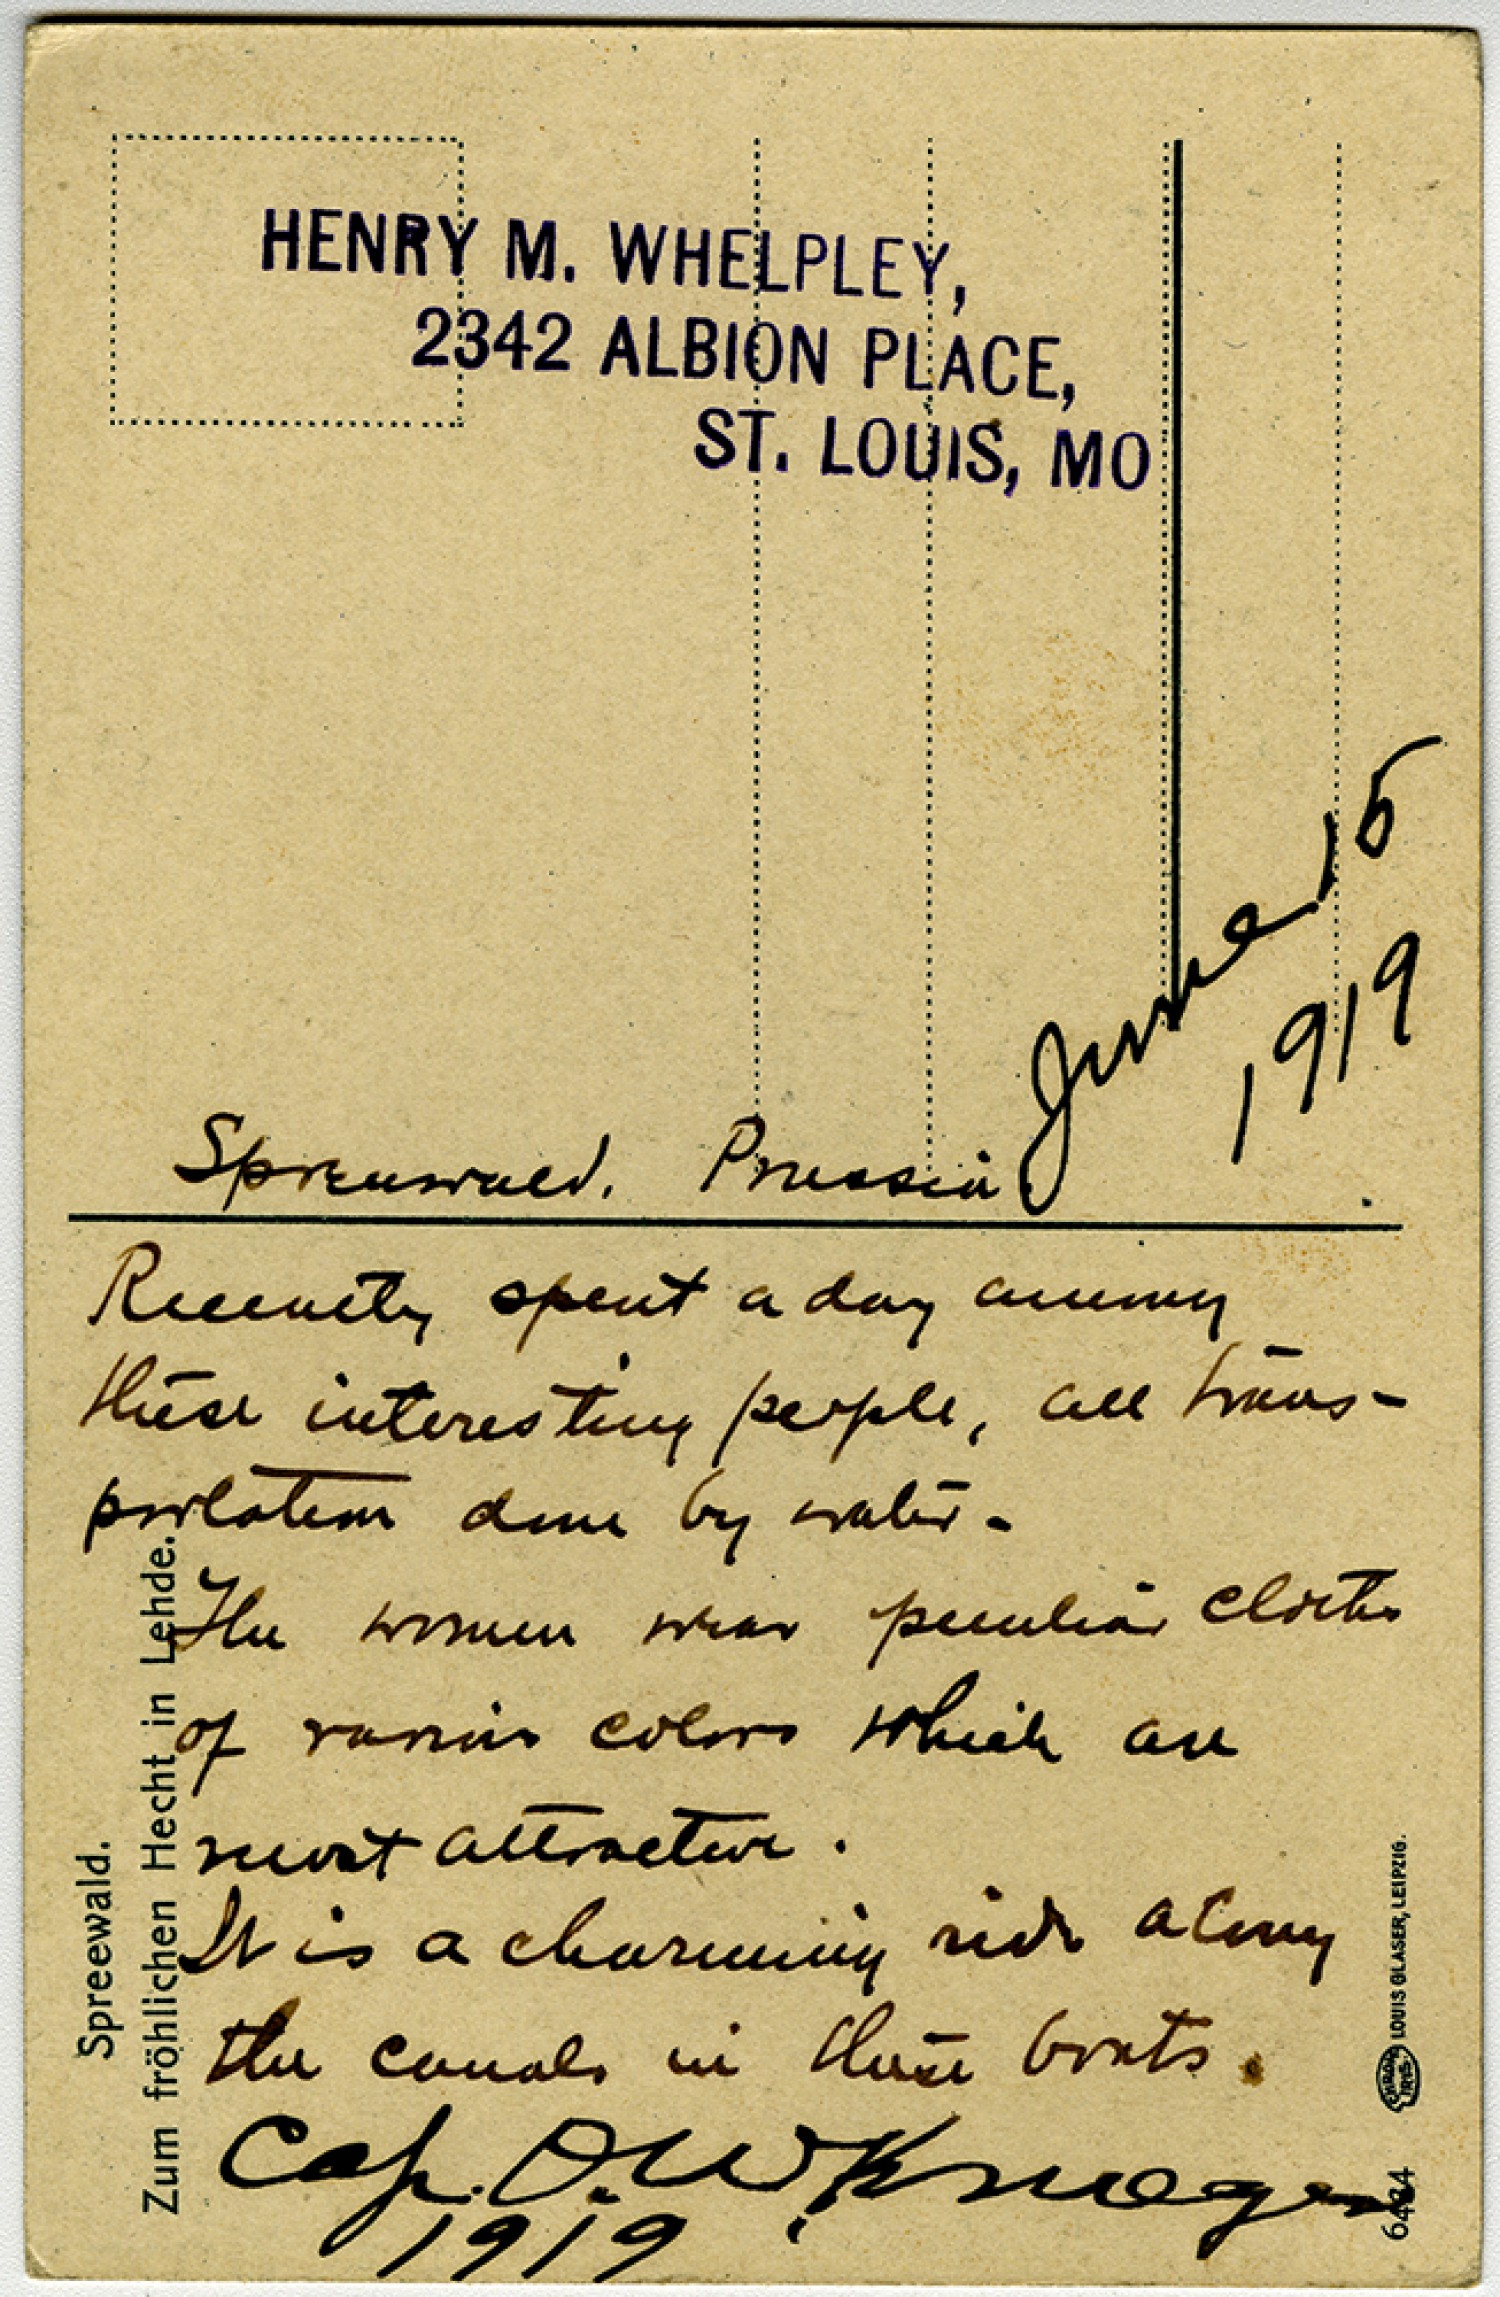 HENRY M. WHELPLEY,
2342 ALBION PLACE,
ST. LOUIS, MO
June 15
1919
Spreewald. Prussia
Recently spent a day among
these interesting people, all trans-
portation done by water-
The women wear peculiar clothes
of various colors which are
most attractive.
It is a charming ride along
the canals in these boats.
Cap. O. W. Krueger
1919
Spreewald.
Zum fröhlichen Hecht in Lehde.
CHROM IRIS LOUIS GLASER, LEIPZIG.
6484